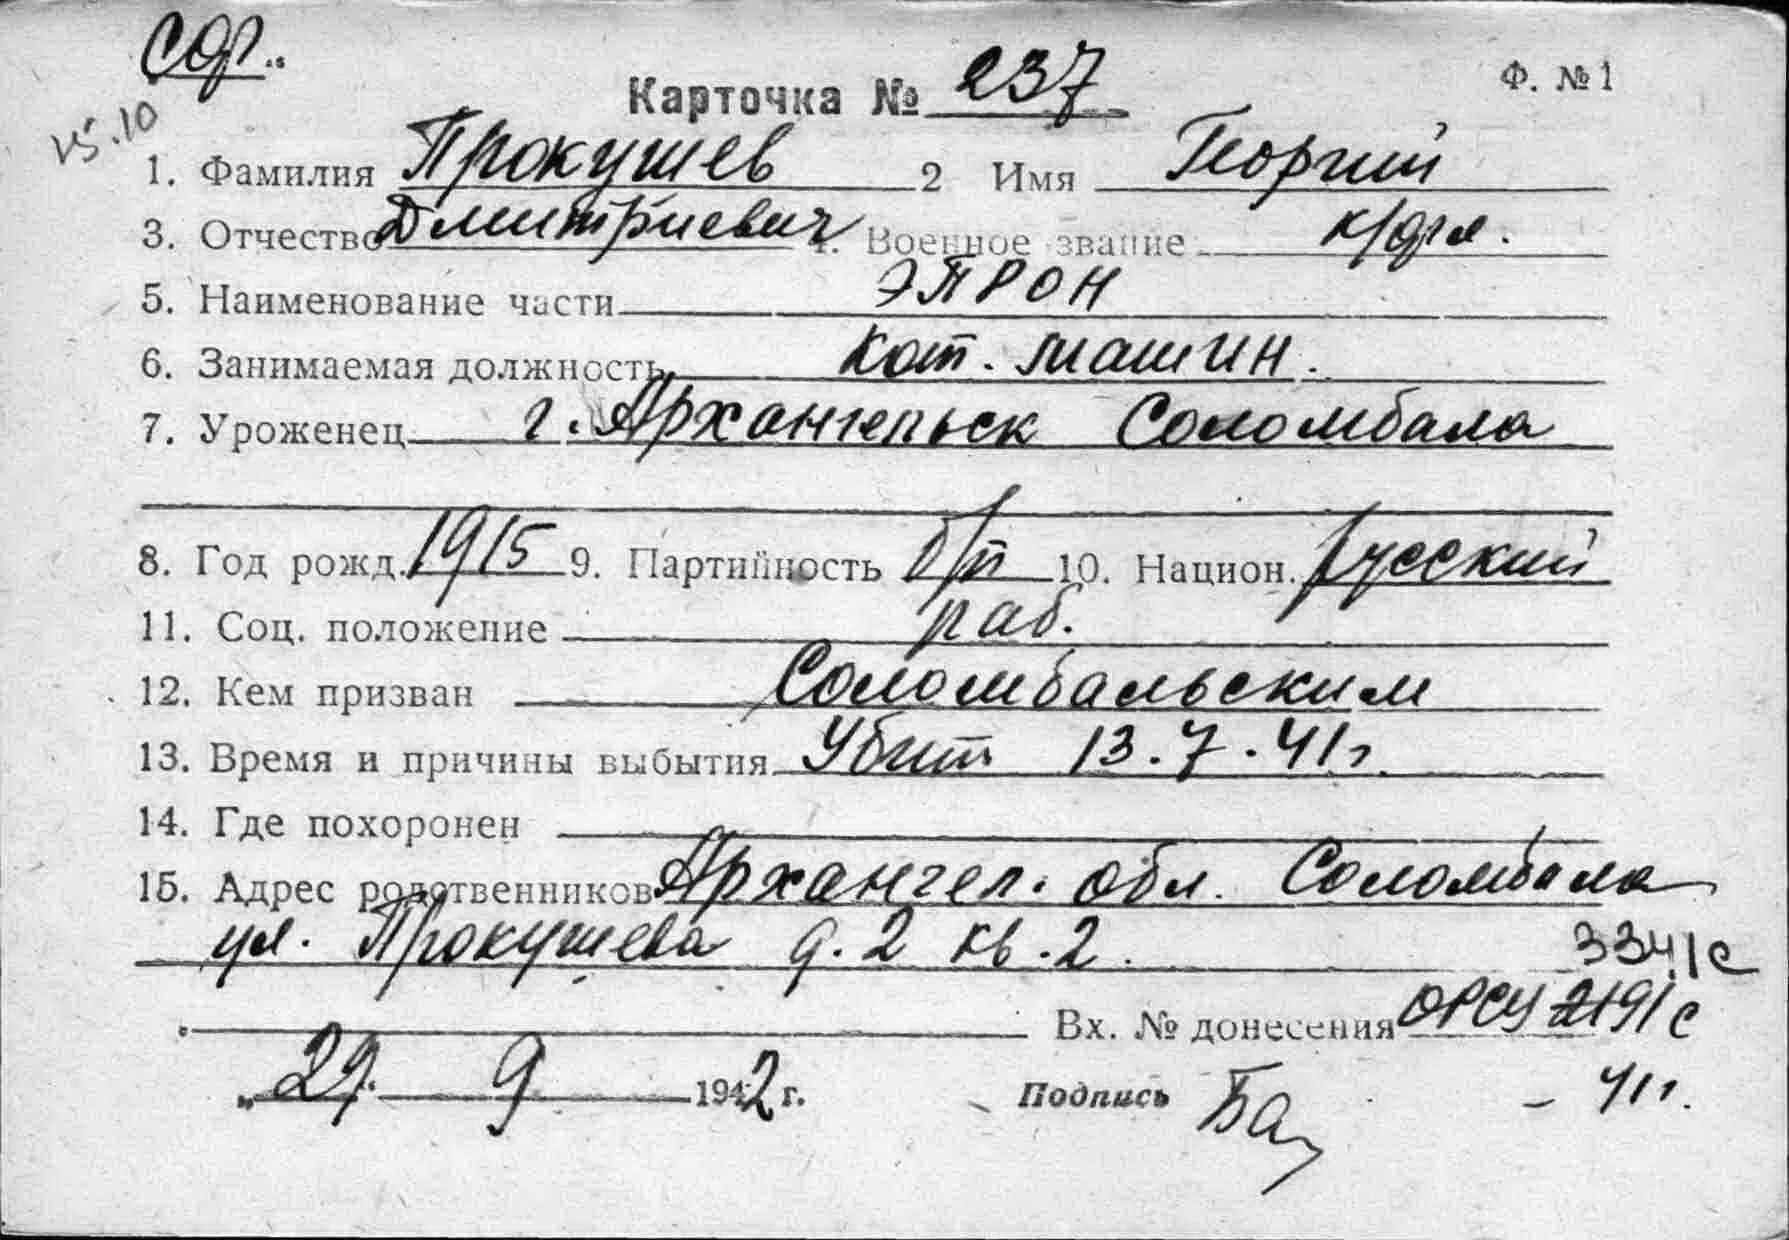 Ф. № 1
Карточка № 237
15.10
1. Фамилия Прокушев 2 Имя Георгий
3. Отчество Дмитриевич 4. Военное звание к/фл.
5. Наименование части ЭПРОН
6. Занимаемая должность Кот. машин.
7. Уроженец г. Архангельск Соломбала
8. Год рожд. 1915 9. Партийность б/п 10. Национ. русский
11. Соц. положение раб.
12. Кем призван Соломбальским
13. Время и причины выбытия Убит 13.7.41г.
14. Где похоронен
15. Адрес родственников Архангел. обл. Соломбала
ул. Прокушева д. 2 кв. 2.
334/с
Вх. № донесения ОРСУ 2191с
„29" 9 1942 г. Подпись Ба
– 41г.